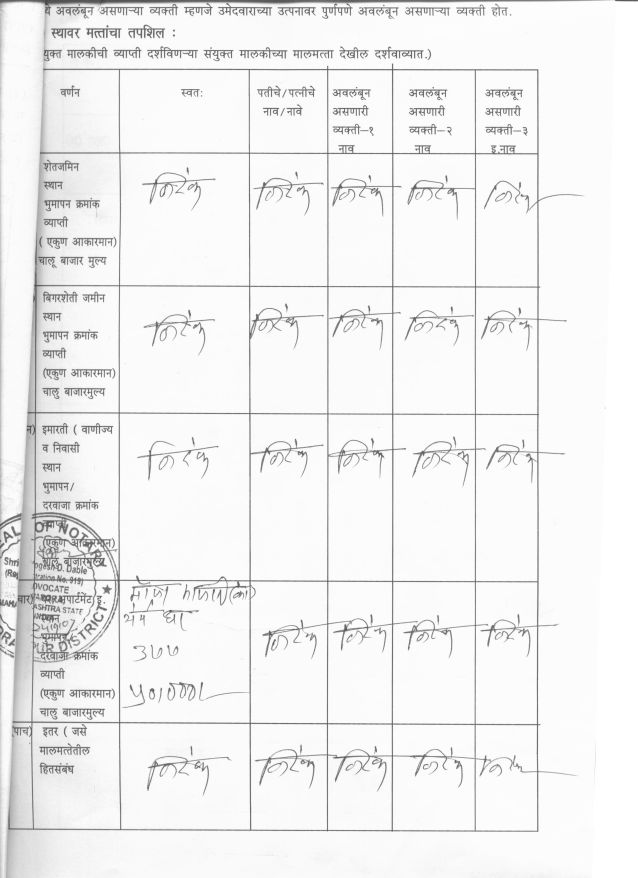 अवलंबून असणाऱ्या व्यक्ती म्हणजे उमेदवाराच्या उत्पनावर पुर्णपणे अवलंबून असणाऱ्या व्यक्ती होत.
स्थावर मत्तांचा तपशिल :
युक्त मालकीची व्याप्ती दर्शविणऱ्या संयुक्त मालकीच्या मालमत्ता देखील दर्शवाव्यात.)
वर्णन स्वतः पतीचे/पत्नीचे नाव/नावे अवलंबून असणारी व्यक्ती-१ नाव अवलंबून असणारी व्यक्ती-२ नाव अवलंबून असणारी व्यक्ती-३ इ.नाव
शेतजमिन
स्थान
भुमापन क्रमांक
व्याप्ती
( एकुण आकारमान)
चालू बाजार मुल्य
निरंक निरंक निरंक निरंक निरंक
बिगरशेती जमीन
स्थान
भुमापन क्रमांक
व्याप्ती
(एकुण आकारमान)
चालु बाजारमुल्य
निरंक निरंक निरंक निरंक निरंक
इमारती ( वाणीज्य
व निवासी
स्थान
भुमापन/
दरवाजा क्रमांक
व्याप्ती
(एकुण आकारमान)
चालु बाजारमुल्य
निरंक निरंक निरंक निरंक निरंक
स्थान
भुमापन
दरवाजा क्रमांक
व्याप्ती
(एकुण आकारमान)
चालु बाजारमुल्य
३७७
निरंक निरंक निरंक निरंक
पाच) इतर ( जसे
मालमत्तेतील
हितसंबंध
निरंक निरंक निरंक निरंक निरंक
OF NOTARY
D. Dable
ADVOCATE
DISTRICT